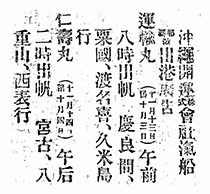 沖縄開運株式会社汽船
那覇出港広告
運輸丸(十一月十三日
旧十月三日)午前
八時出帆 慶良間、
粟國、渡名喜、久米島
行
仁壽丸(十一月十四日
旧十月四日)午后
二時出帆 宮古、八
重山、西表行